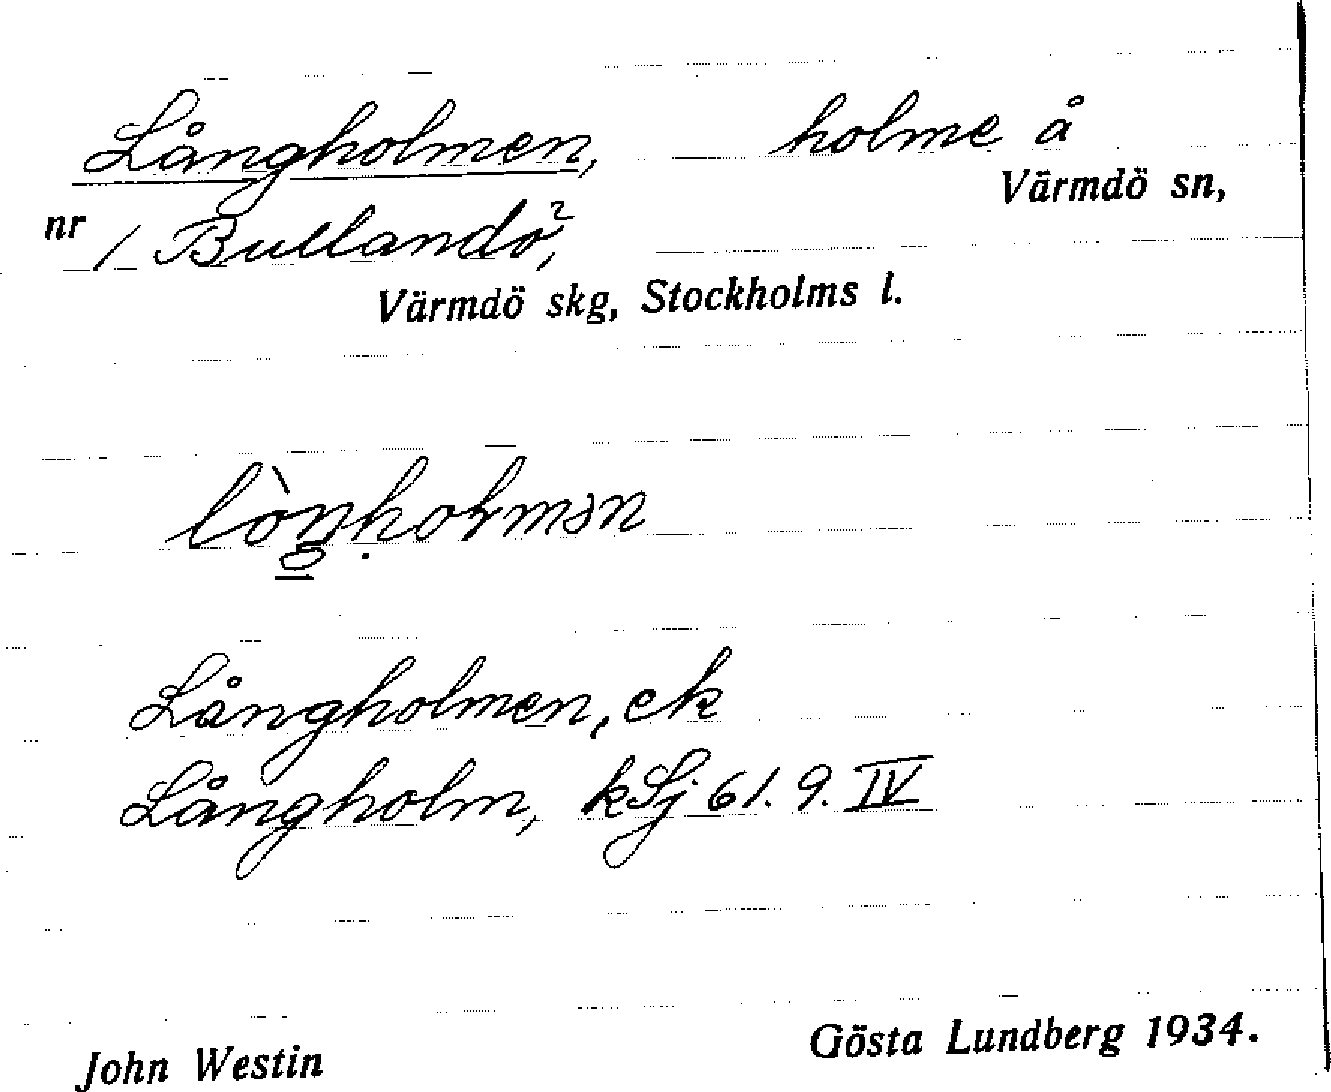 Långholmen, holme å
Värmdö sn,
nr 1 Bullandö²,
Värmdö skg, Stockholms l.
Långholmen, ek
Långholm, kSj 61. 9. IV
John Westin Gösta Lundberg 1934.